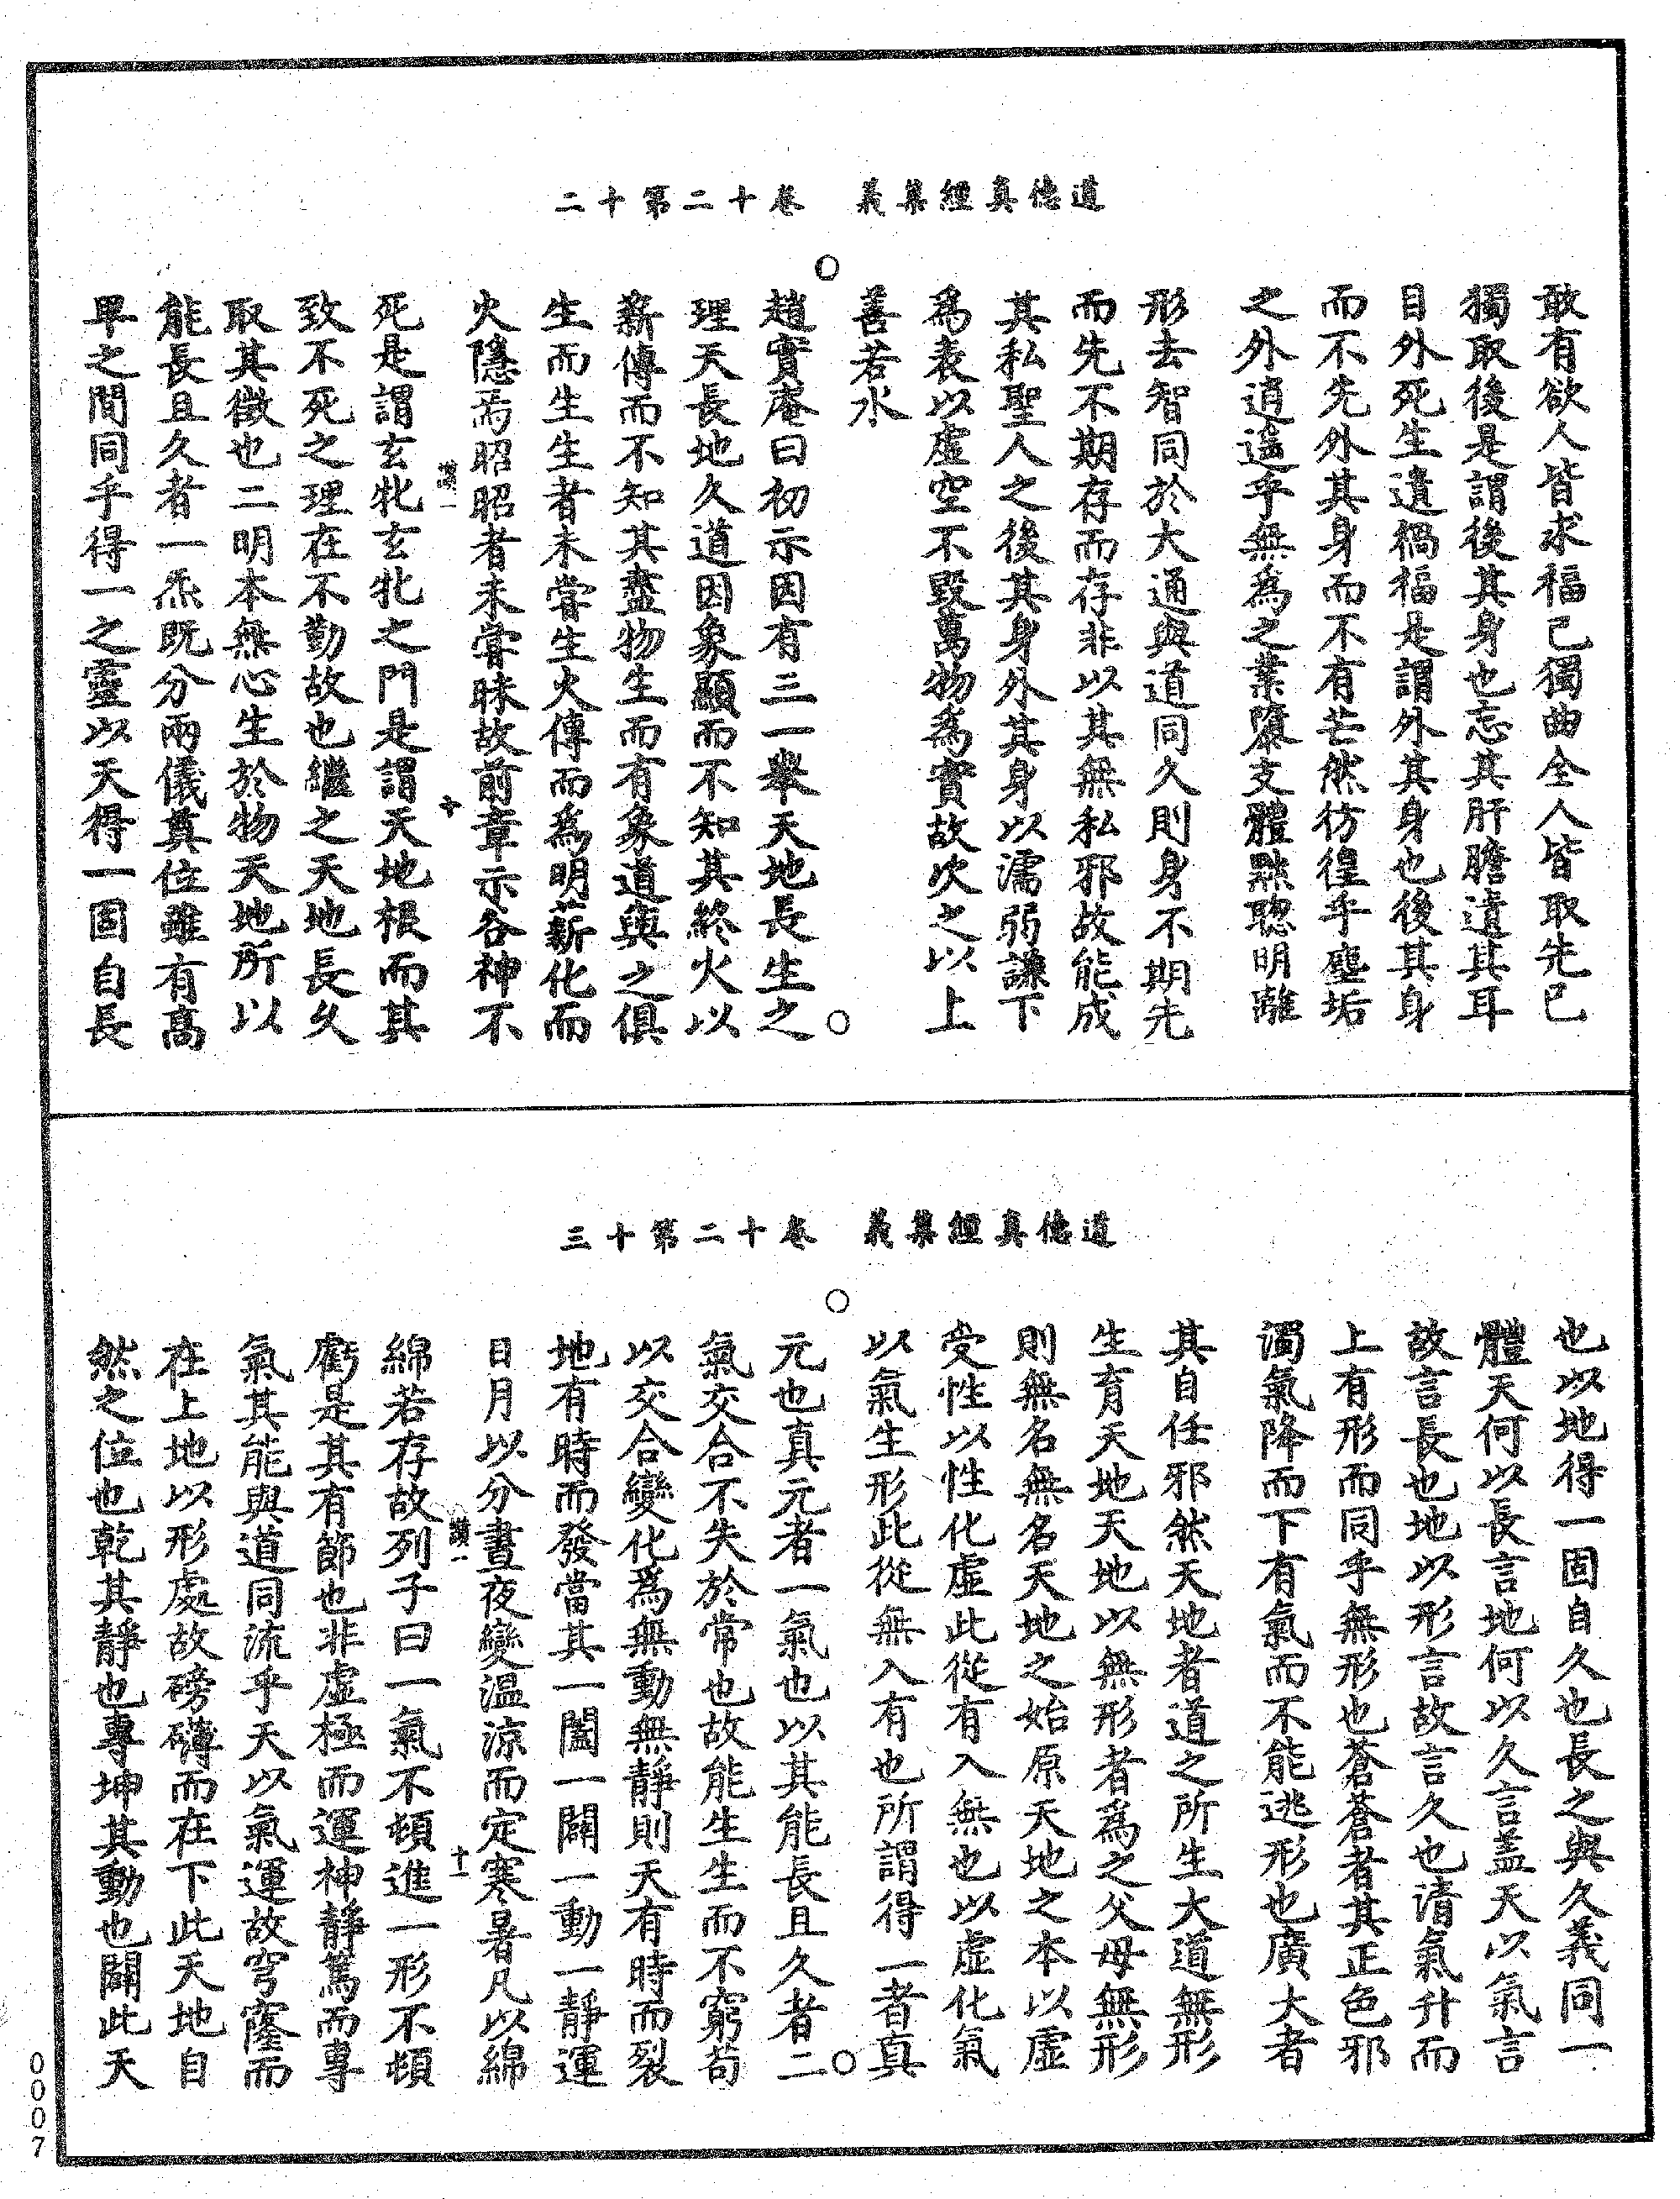 道德真經集義　卷十二第十二
敢有欲人皆求福己獨曲全人皆取先己
獨取後是謂後其身也忘其肝膽遺其耳
目外死生遺禍福是謂外其身也後其身
而不先外其身而不有芒然彷徨乎塵垢
之外逍遥乎無為之業隳支體黜聦明離
形去智同於大通與道同久則身不期先
而先不期存而存非以其無私邪故能成
其私聖人之後其身外其身以濡弱謙下
為表以虛空不毀萬物為實故次之以上
善若水
○
趙實庵曰初示因有三一舉天地長生之
理天長地久道因象顯而不知其終火以
薪傳而不知其盡物生而有象道與之俱
生而生生者未嘗生火傳而為明薪化而
火隱焉昭昭者未嘗昧故前章示谷神不
○
死是謂玄牝玄牝之門是謂天地根而其
致不死之理在不勤故也繼之天地長久
取其徵也二明本無心生於物天地所以
能長且久者一炁既分兩儀奠位雖有高
卑之間同乎得一之靈以天得一固自長
十
道德真經集義　卷十二第十三
也以地得一固自久也長之與久義同一
體天何以長言地何以久言蓋天以氣言
故言長也地以形言故言久也清氣升而
上有形而同乎無形也蒼蒼者其正色邪
濁氣降而下有氣而不能逃形也廣大者
其自任邪然天地者道之所生大道無形
生育天地天地以無形者為之父母無形
則無名無名天地之始原天地之本以虛
受性以性化虛此從有入無也以虛化氣
以氣生形此從無入有也所謂得一者真
○
元也真元者一氣也以其能長且久者二
氣交合不失於常也故能生生而不窮苟
以交合變化為無動無靜則天有時而裂
地有時而發當其一闔一闢一動一靜運
日月以分晝夜變溫涼而定寒暑凡以綿
○
綿若存故列子曰一氣不頓進一形不頓
虧是其有節也非虛極而運神靜篤而專
氣其能與道同流乎天以氣運故穹窿而
在上地以形處故磅礴而在下此天地自
然之位也乾其靜也專坤其動也闢此天
十一
0007